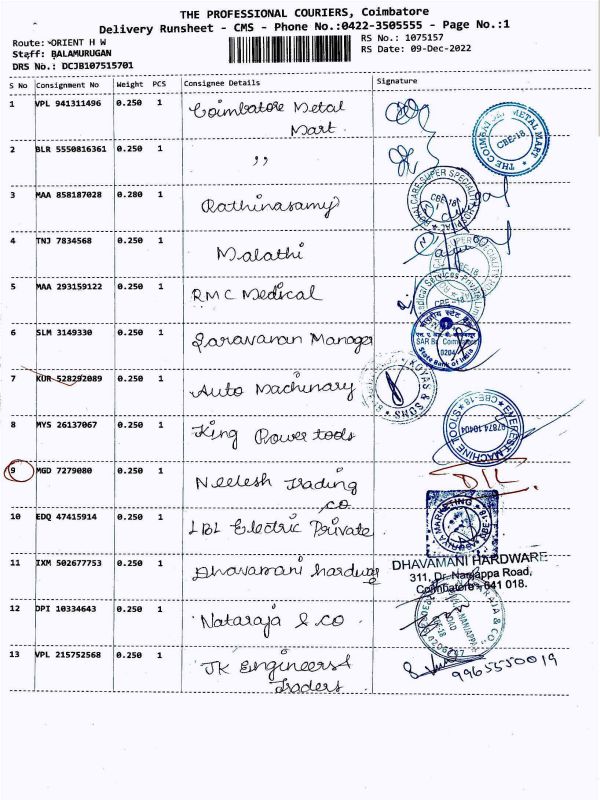 THE PROFESSIONAL COURIERS, Coimbatore
Delivery Runsheet - CMS - Phone No.:0422-3505555 - Page No.:1
Route: ORIENT H W
Staff: BALAMURUGAN
DRS No.: DCJB107515701
RS No.: 1075157
RS Date: 09-Dec-2022
S No Consignment No Weight PCS Consignee Details Signature
1 VPL 941311496 0.250 1 Coimbatore Metal
Mart
THE COIMBATORE METAL MART
CBE-18
2 BLR 5550816361 0.250 1 ,,
3 MAA 858187028 0.280 1 Rathinasamy
ROYAL CARE SUPER SPECIALITY HOSPITAL
CBE-18
4 TNJ 7834568 0.250 1 Malathi
CBE-18
5 MAA 293159122 0.250 1 RMC Medical
Medical Services Private Limited
CBE-18
6 SLM 3149330 0.250 1 Saravanan Manager
SAR Br. Coimbatore
0204
State Bank of India
7 KUR 528292089 0.250 1 Auto Machinary
KOYAS & SONS
8 MYS 26137067 0.250 1 King Power tools
EVEREST MACHINE TOOLS
CBE-18
97874 10404
9 MGD 7279080 0.250 1 Neelesh Trading
co
DIL
10 EDQ 47415914 0.250 1 LBL Electric Private
MARKETING
11 IXM 502677753 0.250 1 Dhavamani hardware
DHAVAMANI HARDWARE
311, Dr. Nanjappa Road,
Coimbatore - 641 018.
12 DPI 10334643 0.250 1 Nataraja & co
NATARAJA & CO.
13 VPL 215752568 0.250 1 JK Engineers &
Traders
9965550019